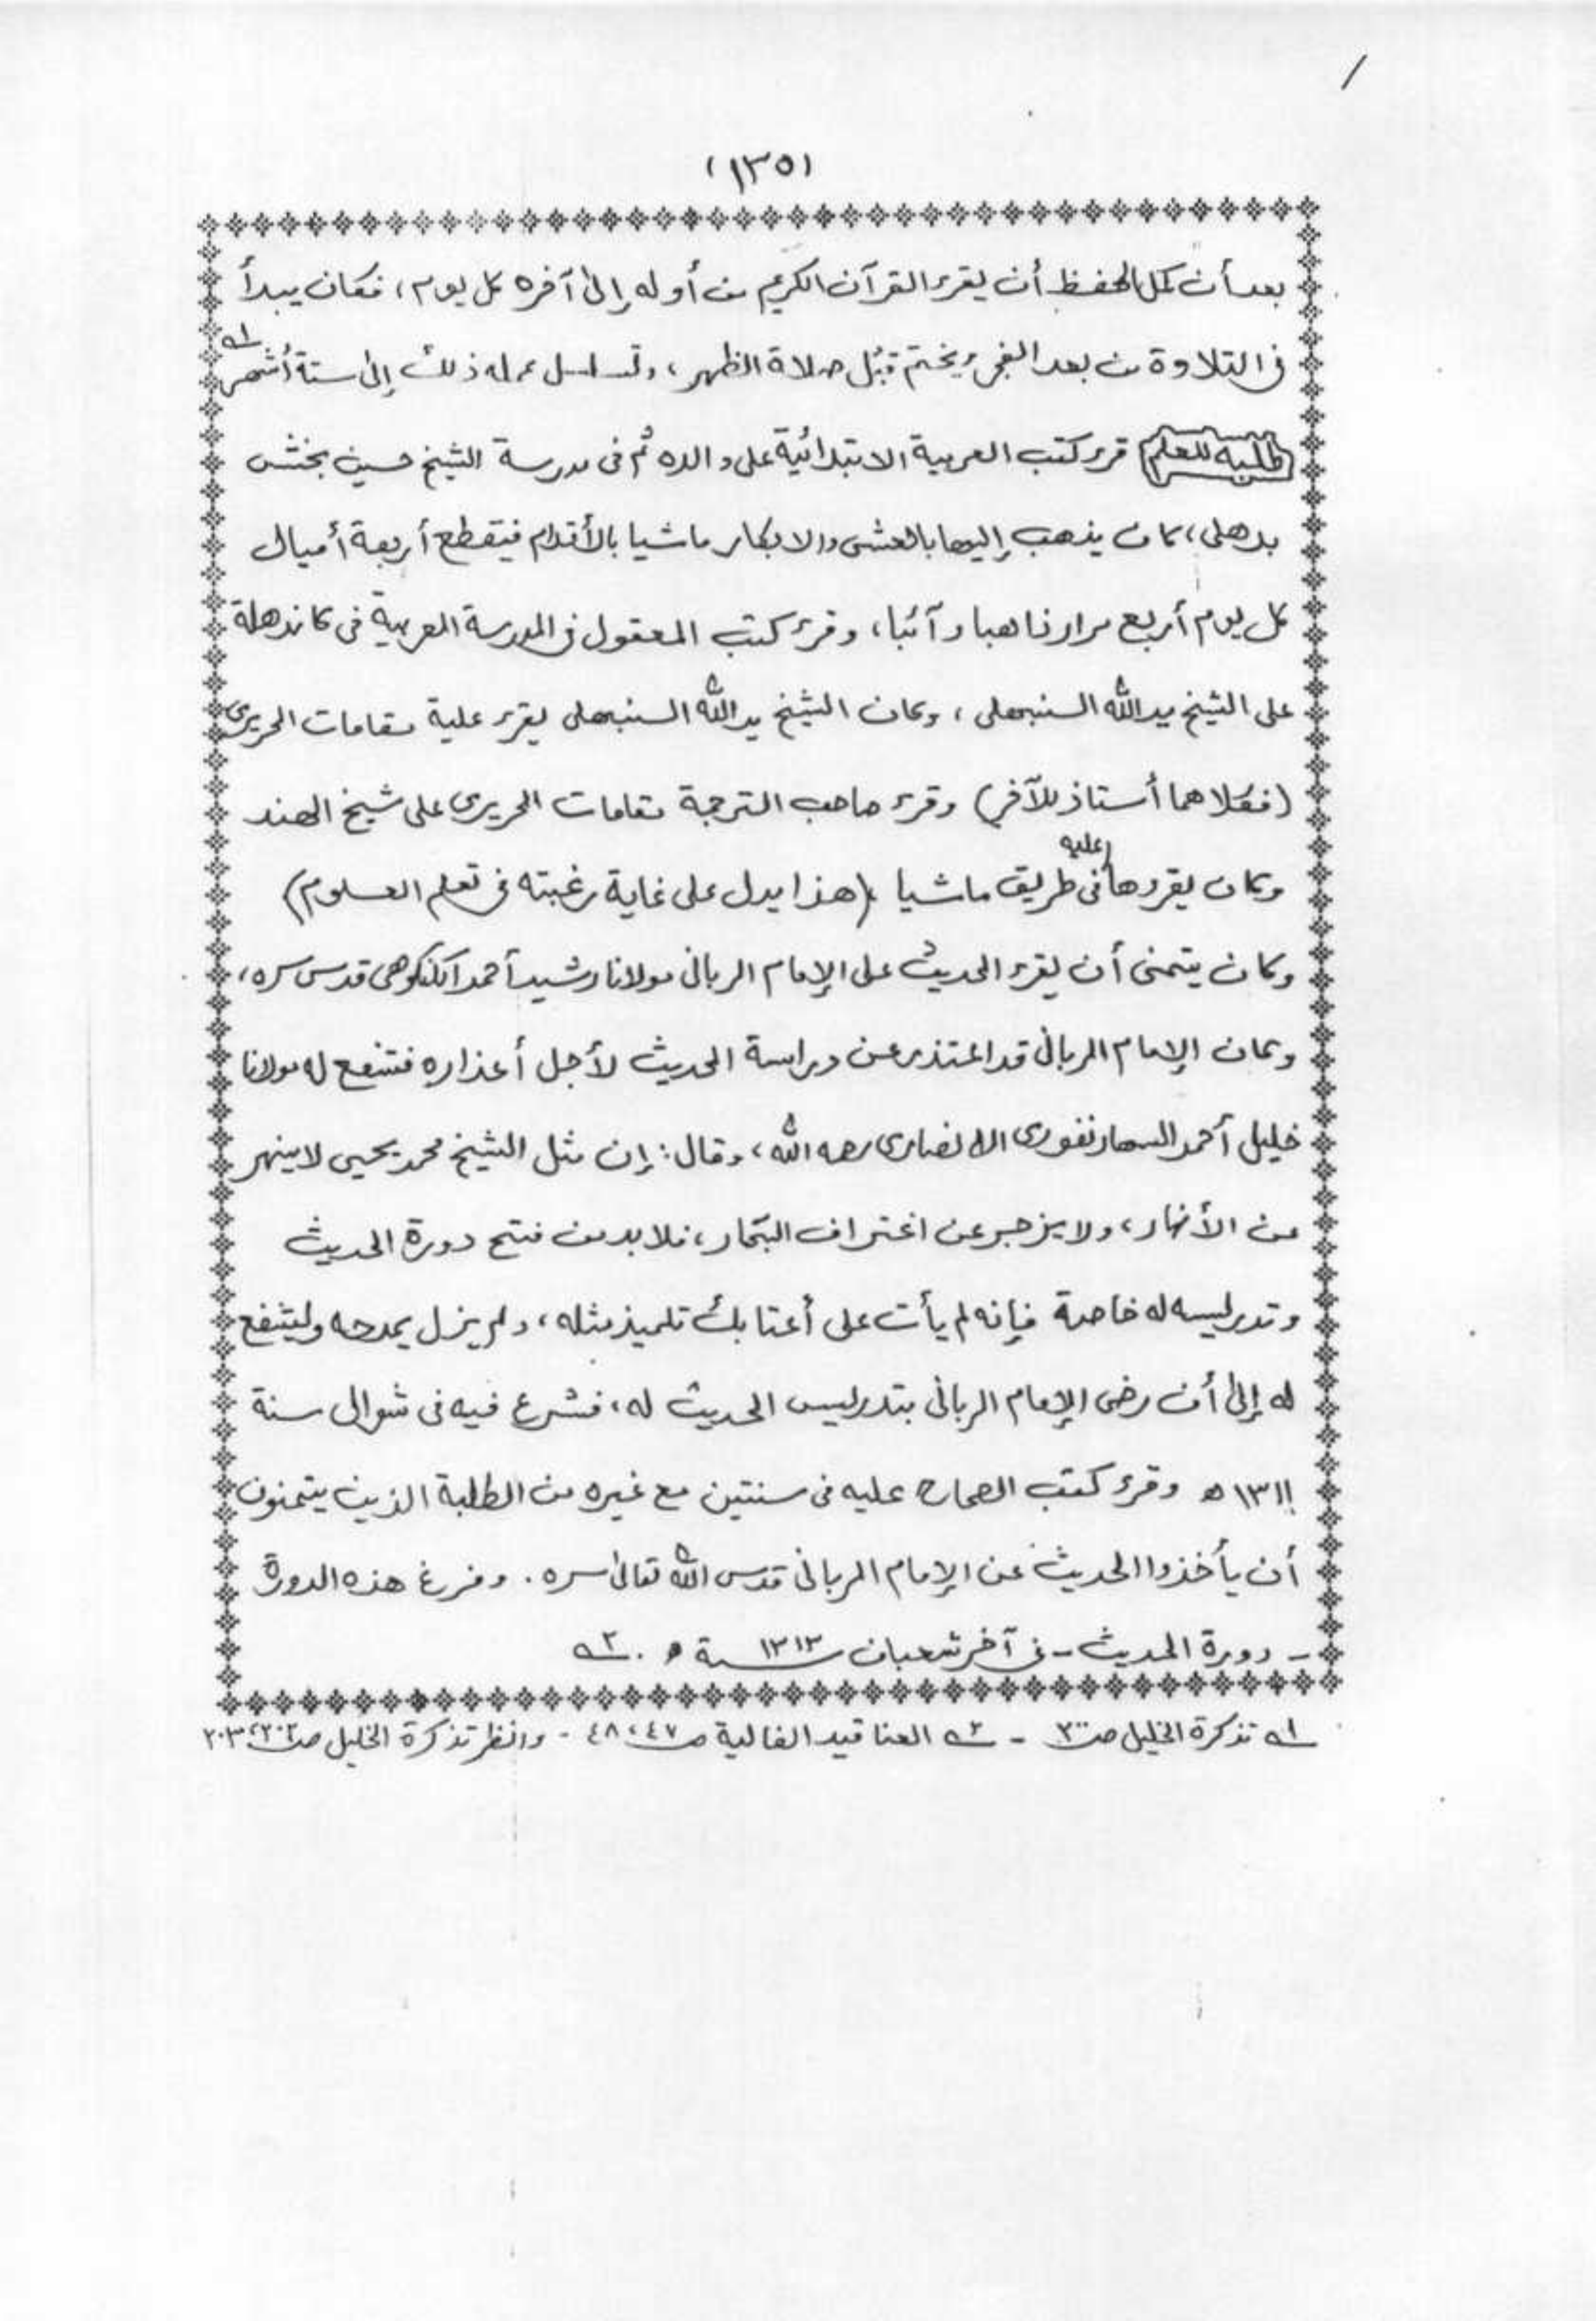 (١٣٥)
بعد أن كمل الحفظ أن يقرء القرآن الكريم من أوله إلى آخره كل يوم، فكان يبدأ
في التلاوة من بعد الفجر ويختم قبُل صلاة الظهر، وتسلسل عمله ذلك إلى ستة أشهر ١ـه
طلبه للعلم قرء كتب العربية الابتدائية على والده ثم في مدرسة الشيخ حسين بخش
بدهلي، كان يذهب إليها بالعشى والابكار ماشيا بالأقدام فيقطع أربعة أميال
كل يوم أربع مرار ذاهبا وآئبا، وقرء كتب المعقول في المدرسة العربية في كاندهلة
على الشيخ يد الله السنبهلى، وكان الشيخ يد الله السنبهلى يقرء علية مقامات الحريرى
(فكلاهما أستاذ للآخر) وقرء صاحب الترجمة مقامات الحريرى على شيخ الهند
وكان يقروها عليه فى طريق ماشيا (هذا يدل على غاية رغبته في تعلم العلوم)
وكان يتمنى أن يقرء الحديث على الإمام الربانى مولانا رشيد أحمد الكنكوهى قدس سره،
وكان الإمام الربانى قد اعتذر عن دراسة الحديث لأجل أعذاره فتشفع له مولانا
خليل أحمد السهارنفورى الانصارى رحمه الله، وقال: إن مثل الشيخ محمد يحيى لا ينهر
عن الأنهار، ولا يزجر عن اغتراف البحار، فلا بد من فتح دورة الحديث
وتدريسه له خاصة فإنه لم يأت على أعتابك تلميذ مثله، ولم يزل يمدحه وليشفع
له إلى أن رضى الإمام الربانى بتدريس الحديث له، فشرع فيه فى شوال سنة
١٣١١ ه وقرء كتب الصحاح عليه فى سنتين مع غيره من الطلبة الذين يتمنون
أن يأخذوا الحديث عن الإمام الربانى قدس الله تعالى سره. وفرغ هذه الدورة
- دورة الحديث - فى آخر شعبان سنة ١٣١٣ ه. ٢ـه
١ـه تذكرة الخليل صـ٢٠٠ - ٢ـه العناقيد الغالية صـ٤٧،٤٨ - وانظر تذكرة الخليل صـ٢٠٢،٢٠٣